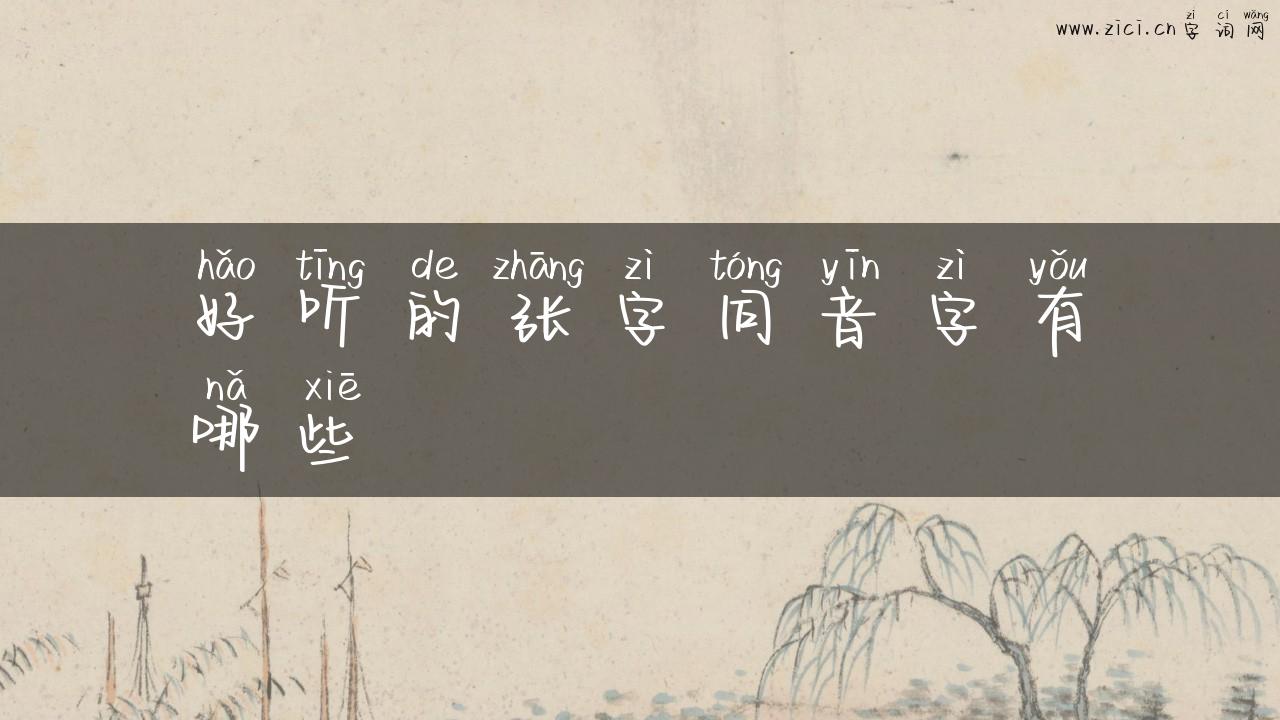 zì cí wǎng
www.zici.cn 字词网
hǎo tīng de zhāng zì tóng yīn zì yǒu
好听的张字同音字有
nǎ xiē
哪些